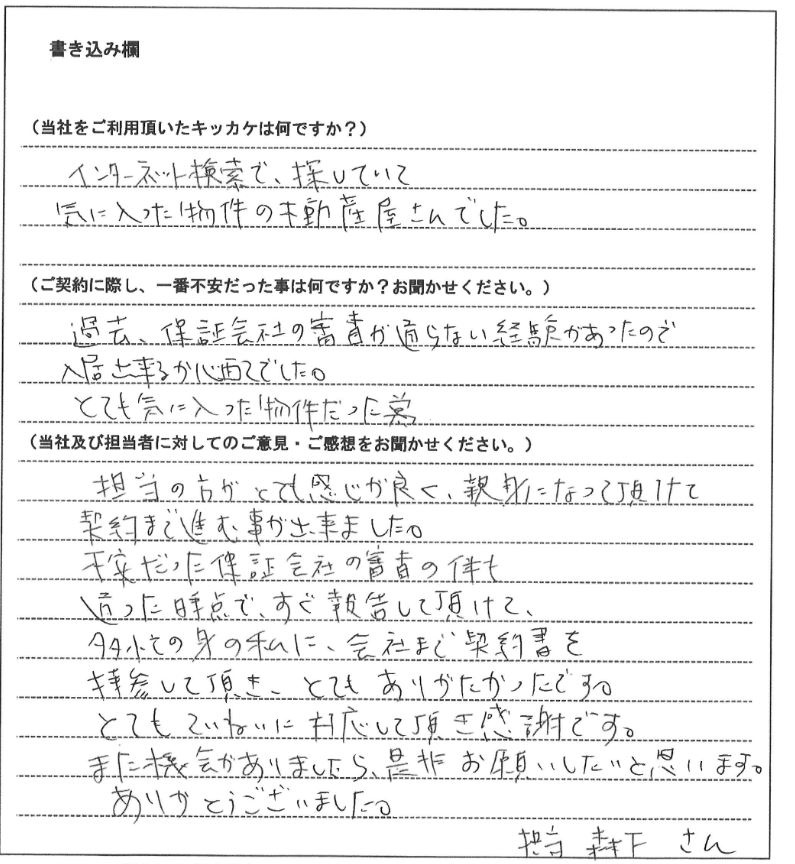 書き込み欄
(当社をご利用頂いたキッカケは何ですか?)
インターネット検索で、探していて
気に入った物件の不動産屋さんでした。
(ご契約に際し、一番不安だった事は何ですか?お聞かせください。)
過去、保証会社の審査が通らない経験があったので
入居出来るか心配でした。
とても気に入った物件だった為
(当社及び担当者に対してのご意見・ご感想をお聞かせください。)
担当の方がとても感じが良く、親身になって頂けて
契約まで進む事が出来ました。
不安だった保証会社の審査の件も
通った時点で、すぐ報告して頂けて、
の身の私に、会社まで契約書を
持参して頂き、とてもありがたかったです。
とてもていねいに対応して頂き感謝です。
また機会がありましたら、是非お願いしたいと思います。
ありがとうございました。
担当 森下 さん